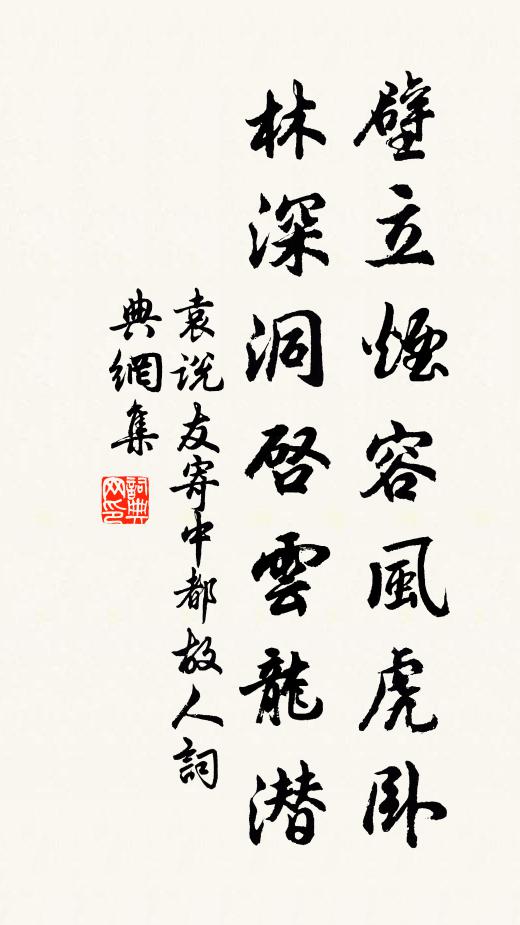 壁立煙容風虎卧
林深洞啓雲龍潛
袁説友寄中都故人詞
典網集
詞典
网印